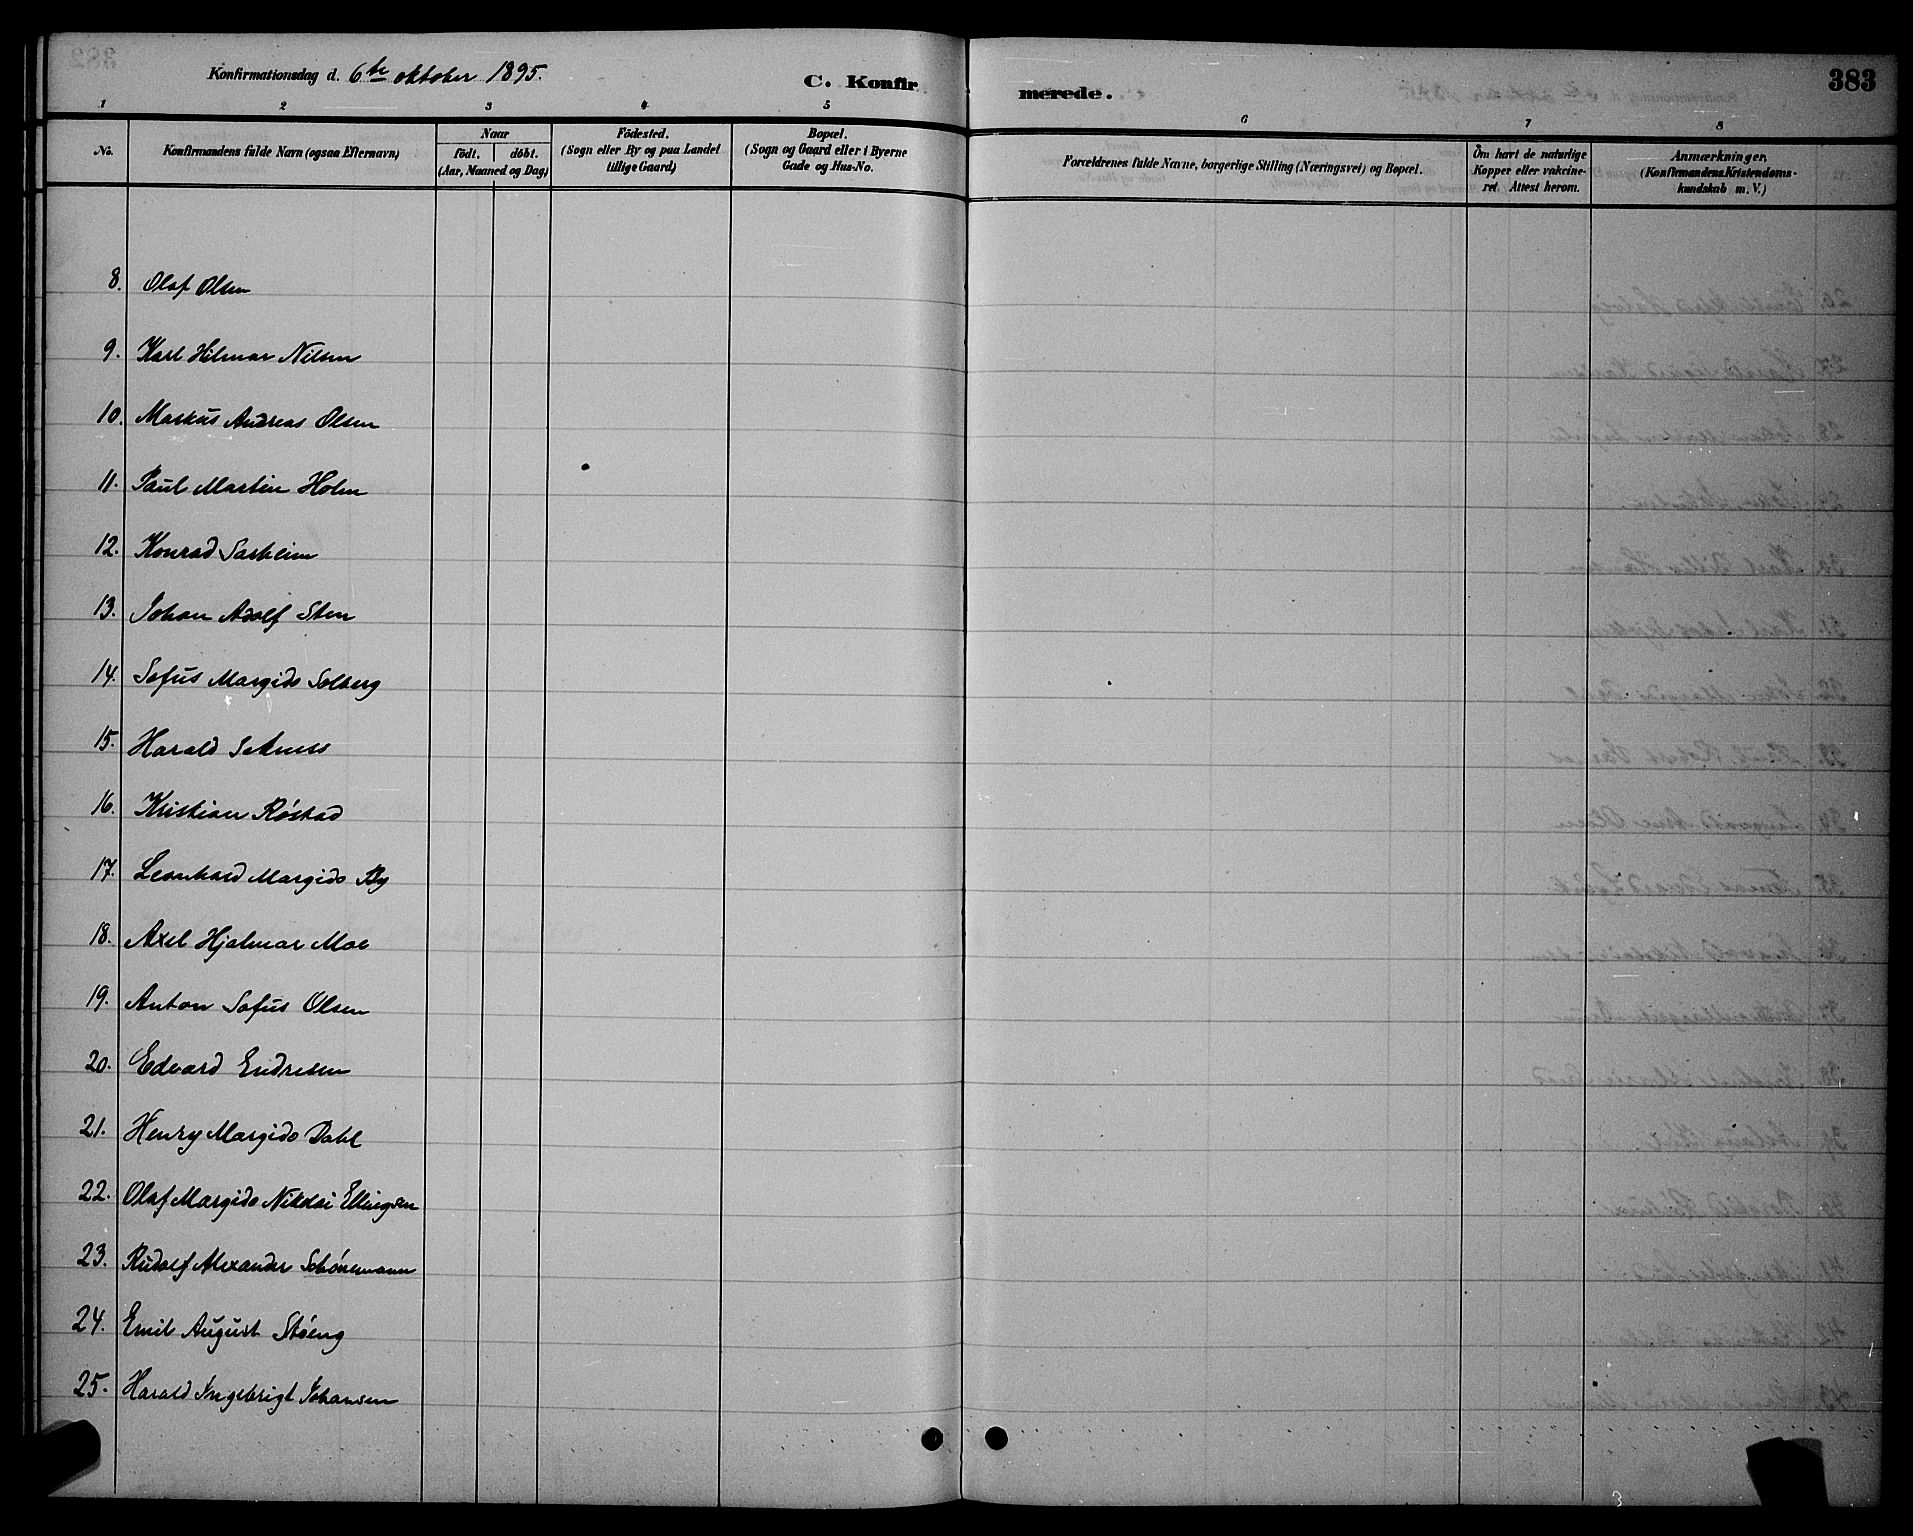 Konfirmationsdag d. 6te oktober 1895.
C. Konfirmerede.
383
1 2 3 4 5 6 7 8
No.
Konfirmandens fulde Navn (ogsaa Efternavn)
Naar
født. døbt.
(Aar, Maaned og Dag)
Fødested.
(Sogn eller By og paa Landet
tillige Gaard)
Bopæl.
(Sogn og Gaard eller i Byerne
Gade og Hus-No.
Forældrenes fulde Navne, borgerlige Stilling (Næringsvei) og Bopæl.
Om havt de naturlige
Kopper eller vakcine-
ret. Attest herom.
Anmærkninger.
(Konfirmandens Kristendoms-
kundskab m. V.)
8. Olaf Olsen
9. Karl Hilmar Nilsen
10. Markus Andreas Olsen
11. Paul Martin Holm
12. Konrad
13. Johan Adolf Sten
14. Sofus Margido Solberg
15. Harald Setness
16. Kristian Røstad
17. Leonhard Margido By
18. Axel Hjalmar Moe
19. Anton Sofus Olsen
20. Edvard Endresen
21. Henry Margido Dahl
22. Olaf Margido Nikolai Ellingsen
23. Rudolf Alexander Schönemann
24. Emil August Støeng
25. Harald Ingebrigt Johansen